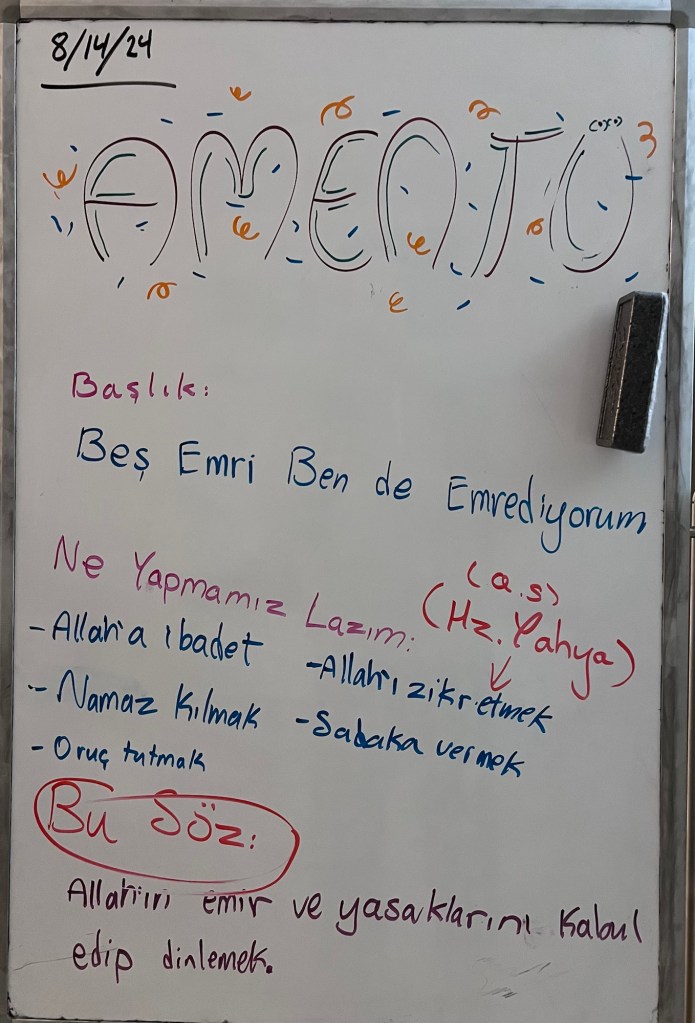 8/14/24
AMENTÜ
Başlık:
Beş Emri Ben de Emrediyorum
Ne Yapmamız Lazım:
(a.s)
(Hz. Yahya)
- Allah'a ibadet
- Namaz Kılmak
- Oruç tutmak
- Allah'ı zikretmek
- Sadaka vermek
Bu Söz:
Allah'ın emir ve yasaklarını kabul
edip dinlemek.